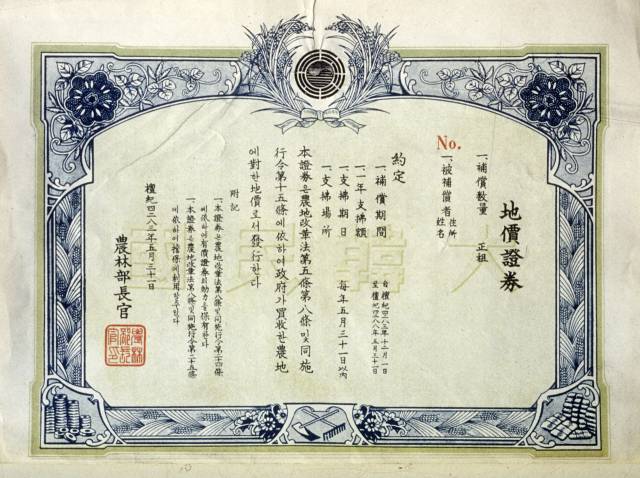 地價證券
一. 補償數量 正租
No.
一. 被補償者 住所 姓名
約定
一. 補償期間 自檀紀四二八三年十二月一日 至檀紀四二八八年五月三十一日
一. 一年支拂額
一. 支拂期日 每年五月三十一日以內
一. 支拂場所
本證券은農地改革法第五條第八條및同施
行令第十五條에依하여政府가買收한農地
에對한地價로서發行한다
附記
一. 本證券은農地改革法第八條및同施行令第二十四條
에依하여有價證券의効力을保有한다
一. 本證券은農地改革法第八條및同施行令第二十五條
에依하여擔保에利用할수있다
檀紀四二八三年五月三十一日
農林部長官
農林部長官印
大韓民國